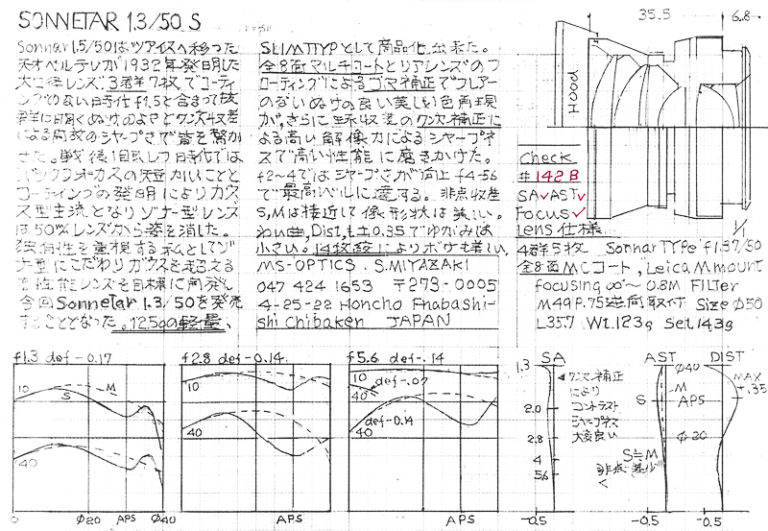 SONNETAR 1.3/50 S
Sonnar 1.5/50はツアイスへ移った
天才ベルテレが1932年発明した
大口径レンズ、3群7枚でコーティ
ングのない時代 f1.5と合まって抜
群に明るくぬけのよさとワンス収差
による開放のシャープさで皆を驚か
せた。戦後1眼レフ時代では
バックフォーカスの短かいことと
コーティングの発明によりガウ
ス型主流となりゾナー型レンズ
は50%レンズから姿を消した。
独創性を重視する私としてゾ
ナ型にこだわりガウスを超える
高性能レンズを目標に開発し
今回Sonnetar 1.3/50を発売
することとなった。125gの軽量、
SLIMTTYPとして商品化出来た。
全8面マルチコートとリアレンズのフ
ローティングによるコマ補正でフレアー
のないぬけの良い美しい色再現
が、さらに球収差のワンス補正に
よる高い解像力によるシャープネ
スで高い性能に磨きかけた。
f2~4ではシャープさが向上 f4-56
で最高レベルに達する。非点収差
S,Mは接近して像形状は美しい。
わい曲、Dist,も±0.35でゆがみは
小さい。14枚絞によりボケも美しい、
MS-OPTICS . S.MIYAZAKI
047 424 1653 〒273-0005
4-25-22 Honcho Fnabashi-
shi Chibaken JAPAN
35.5
6.8
Hood
Check
#142B
SA✓AST✓
Focus✓
Lens仕様
1/1
4群5枚 Sonnar TYPe f1.37/50
全8面MCコート, Leica Mmount
focusing ∞~0.8M FILter
M49 P.75逆向取付 Size Ø50
L35.7 Wt.123g Set.143g
f1.3 def-0.17
10
S
M
40
0 Ø20 APS Ø40
f2.8 def-0.14.
10
40
APS
f5.6 def-.14
10
def-.07
40
def-0.14
40
APS
SA
1.3
2.0
2.8
4
56
-0.5
により
コントラスト
シャープネス
大変良い
AST
Ø40
M
S
APS
Ø20
S≒M
-0.5
DIST
MAX
+.35
-0.5